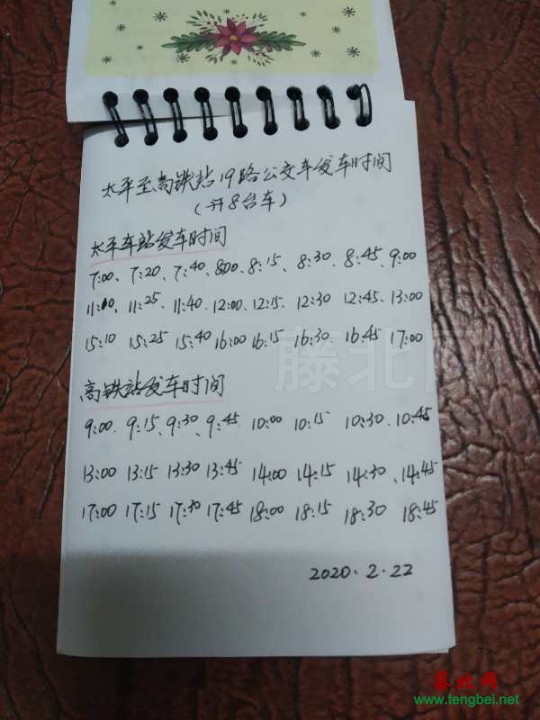 太平至高铁站19路公交车发车时间
(开8台车)
太平车站发车时间
7:00、7:20、7:40、8:00、8:15、8:30、8:45、9:00
11:00、11:25、11:40、12:00、12:15、12:30 12:45、13:00
15:10 15:25 15:40 16:00 16:15 16:30 16:45 17:00
高铁站发车时间
9:00、9:15、9:30、9:45、10:00 10:15 10:30、10:45
13:00 13:15 13:30 13:45 14:00 14:15 14:30、14:45
17:00 17:15 17:30 17:45 18:00 18:15 18:30 18:45
2020.2.22
藤北网
藤北网
www.tengbei.net